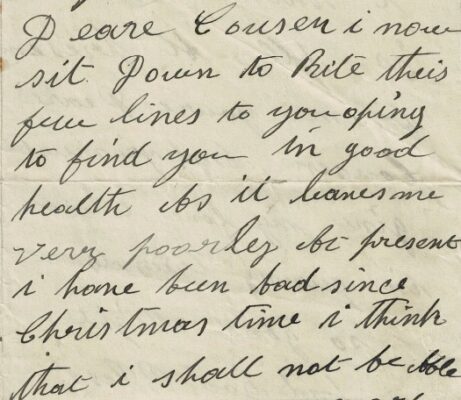 Deare Cousen i now
sit Down to Rite theis
few lines to you oping
to find you in good
health As it leaves me
very poorley At present
i have been bad since
Christmas time i think
that i shall not be Able